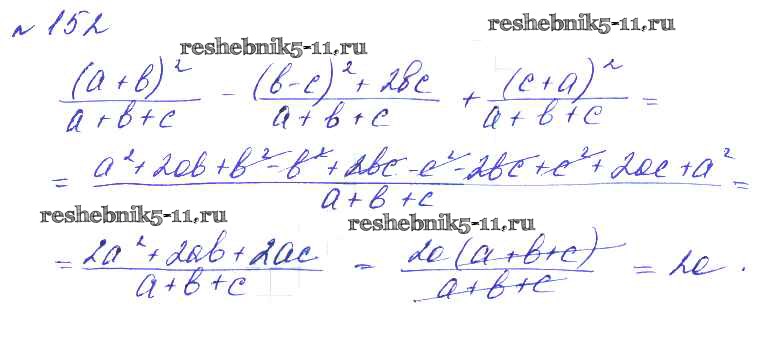 № 152
reshebnik5-11.ru reshebnik5-11.ru
(a+b)²/(a+b+c) - ((b-c)²+2bc)/(a+b+c) + (c+a)²/(a+b+c) =
= (a²+2ab+b²-b²+2bc-c²-2bc+c²+2ac+a²)/(a+b+c) =
reshebnik5-11.ru reshebnik5-11.ru
= (2a²+2ab+2ac)/(a+b+c) = 2a(a+b+c)/(a+b+c) = 2a.